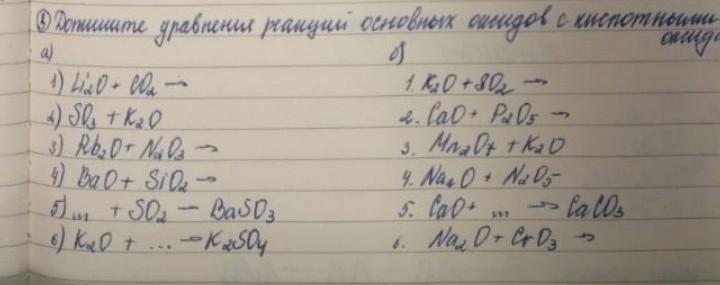 ③ Допишите уравнения реакций основных оксидов с кислотными
оксид
а)
1) Li₂O + CO₂ →
2) SO₃ + K₂O
3) Rb₂O + N₂O₃ →
4) BaO + SiO₂ →
5) ... + SO₂ — BaSO₃
6) K₂O + ... → K₂SO₄
б)
1. K₂O + SO₂ →
2. CaO + P₂O₅ →
3. Mn₂O₇ + K₂O
4. Na₂O + N₂O₅
5. CaO + ... → CaCO₃
6. Na₂O + CrO₃ →